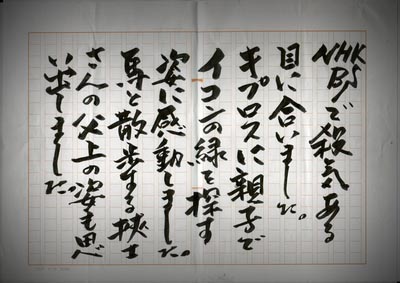 NHK BSで殺気ある
目に合いました。
キプロスに親子で
イコンの緑を探す
姿に感動しました。
馬と散歩する挾士
さんの父上の姿も思
い出しました。